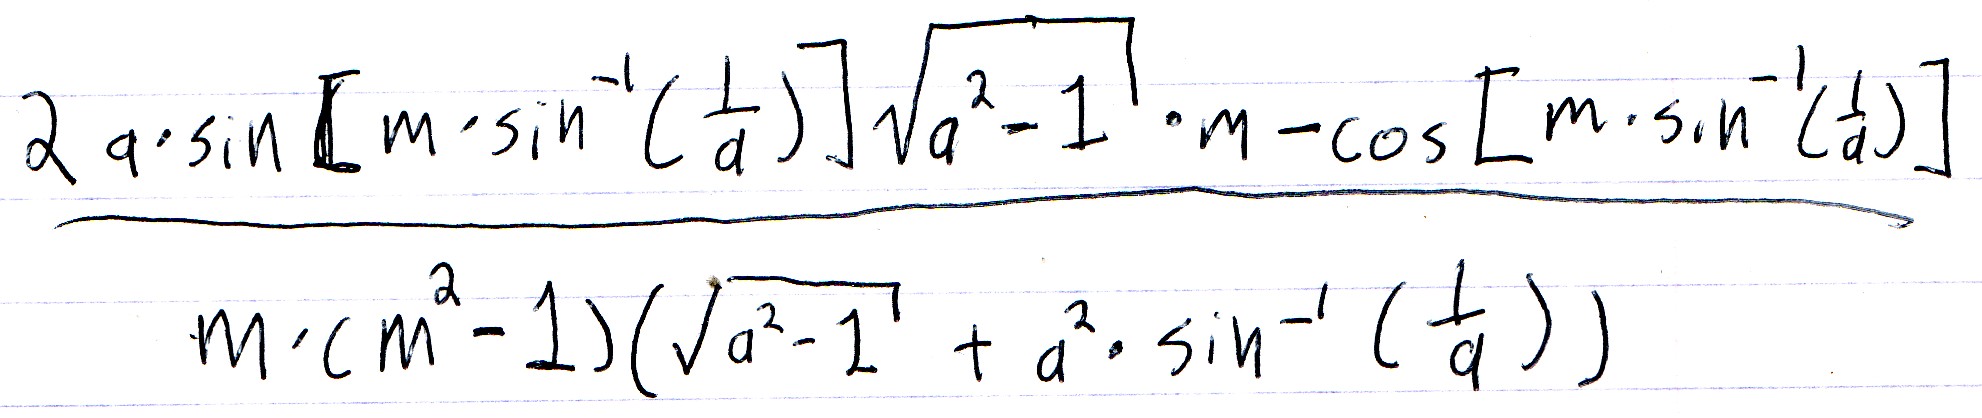 2 a·sin[m·sin⁻¹(1/a)]√(a²-1)·m-cos[m·sin⁻¹(1/a)]
m·(m²-1)(√(a²-1) + a²·sin⁻¹(1/a))